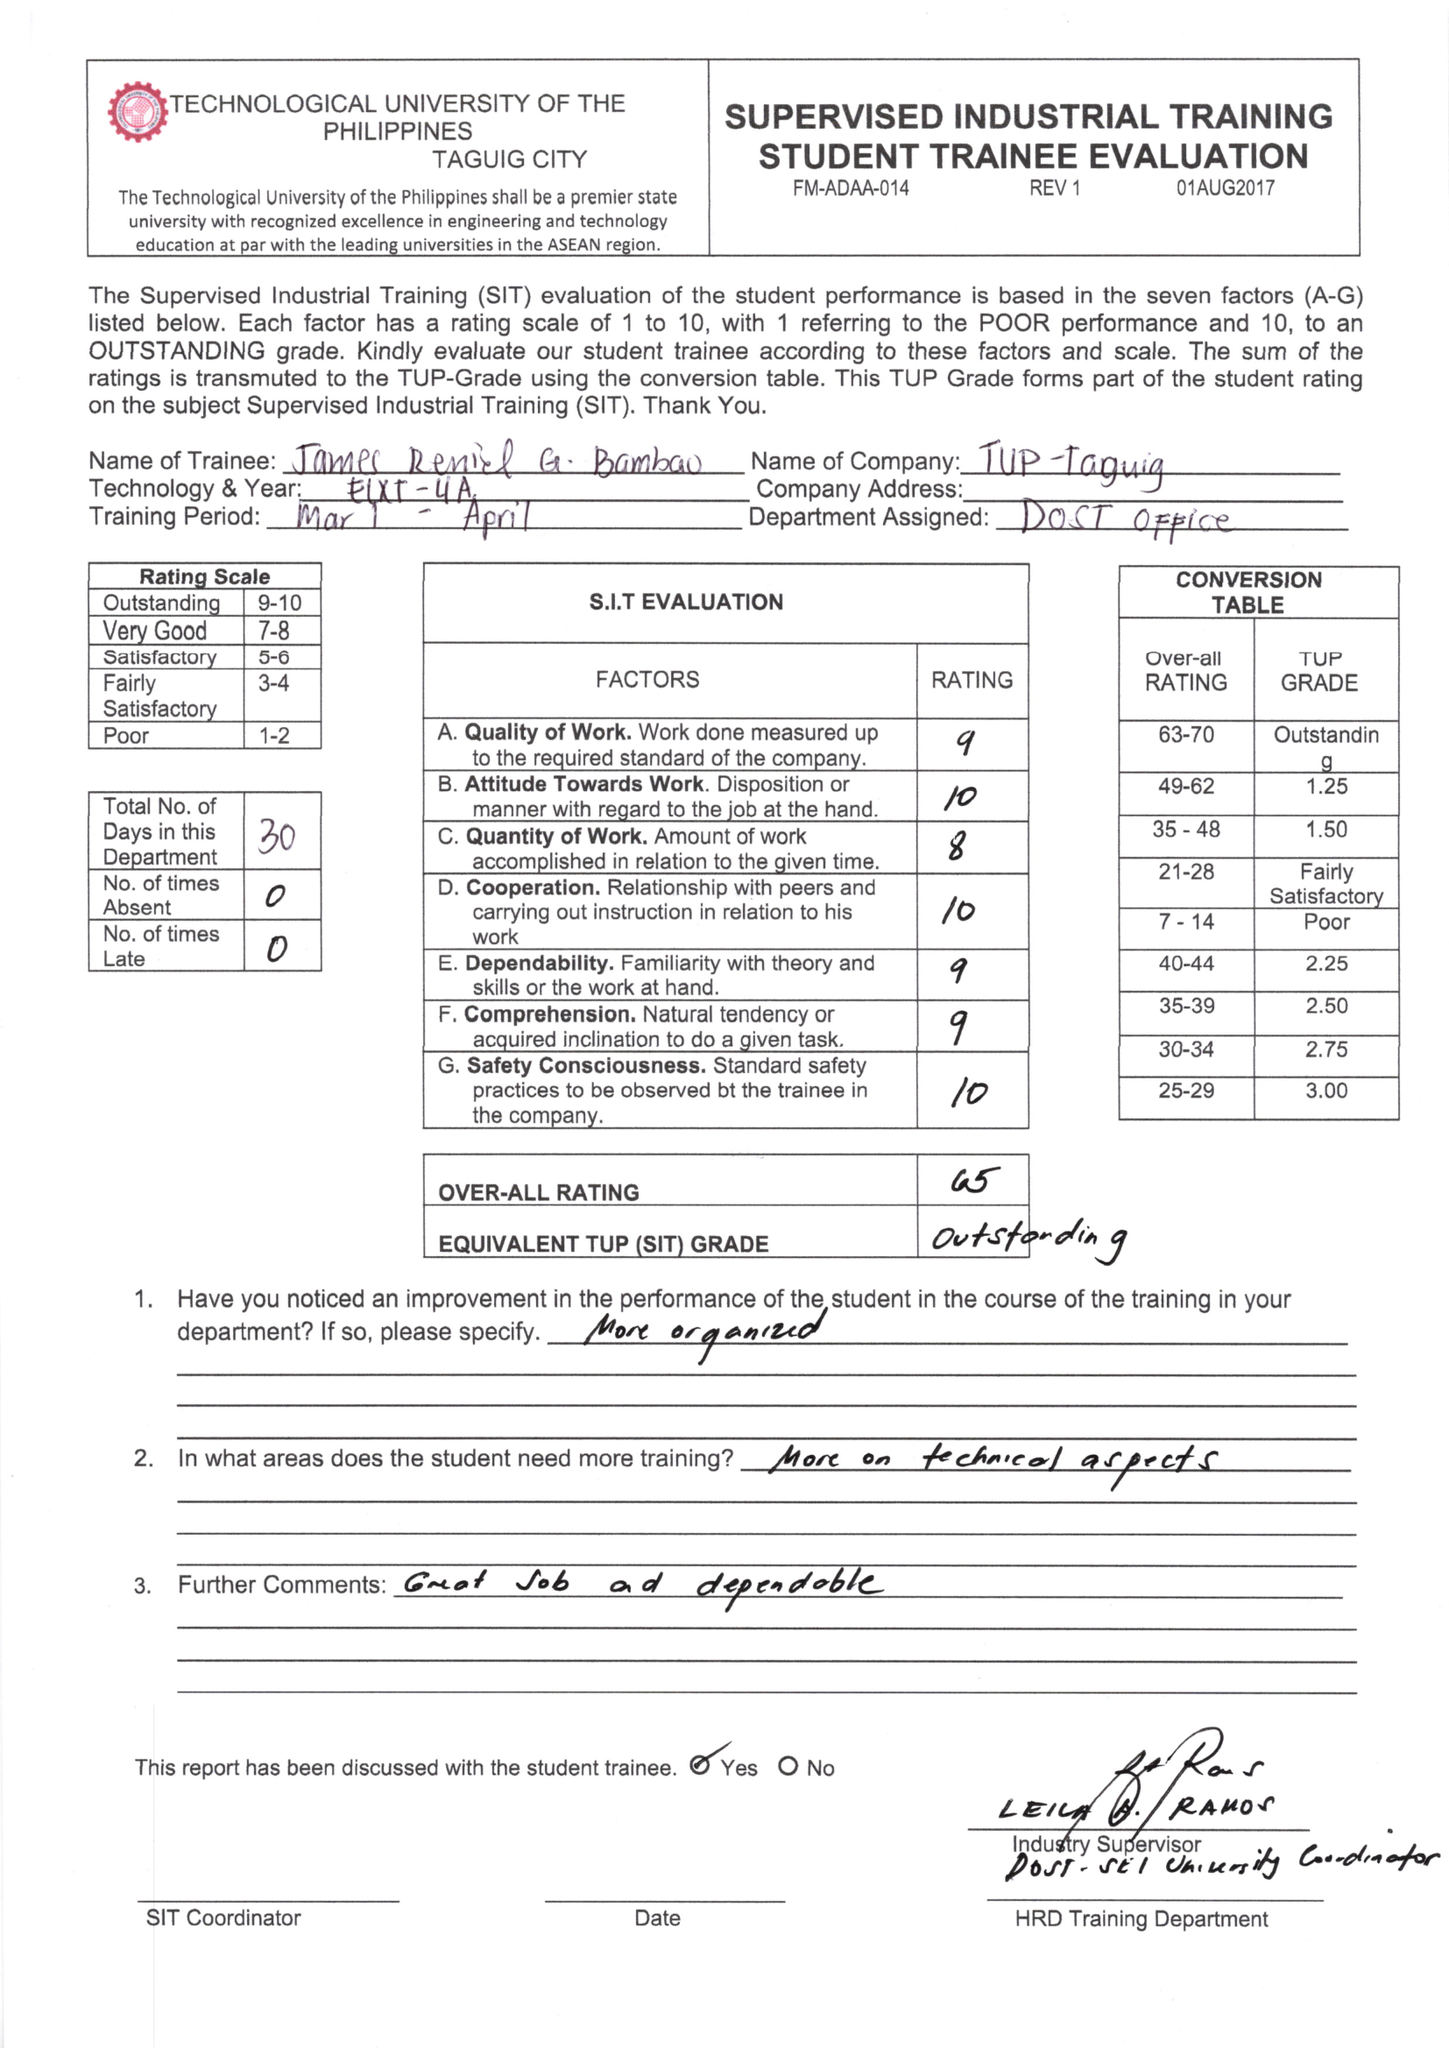 TECHNOLOGICAL UNIVERSITY OF THE
PHILIPPINES
TAGUIG CITY
The Technological University of the Philippines shall be a premier state
university with recognized excellence in engineering and technology
education at par with the leading universities in the ASEAN region.
SUPERVISED INDUSTRIAL TRAINING
STUDENT TRAINEE EVALUATION
FM-ADAA-014 REV 1 01AUG2017
The Supervised Industrial Training (SIT) evaluation of the student performance is based in the seven factors (A-G)
listed below. Each factor has a rating scale of 1 to 10, with 1 referring to the POOR performance and 10, to an
OUTSTANDING grade. Kindly evaluate our student trainee according to these factors and scale. The sum of the
ratings is transmuted to the TUP-Grade using the conversion table. This TUP Grade forms part of the student rating
on the subject Supervised Industrial Training (SIT). Thank You.
Name of Trainee: James Reniel G. Bambao Name of Company: TUP-Taguig
Technology & Year: ElXT-4A Company Address:
Training Period: Mar 1 - April Department Assigned: DOST OFFice
Rating Scale
Outstanding 9-10
Very Good 7-8
Satisfactory 5-6
Fairly 3-4
Satisfactory
Poor 1-2
Total No. of
Days in this 30
Department
No. of times
Absent 0
No. of times
Late 0
S.I.T EVALUATION
FACTORS RATING
A. Quality of Work. Work done measured up
to the required standard of the company. 9
B. Attitude Towards Work. Disposition or
manner with regard to the job at the hand. 10
C. Quantity of Work. Amount of work
accomplished in relation to the given time. 8
D. Cooperation. Relationship with peers and
carrying out instruction in relation to his 10
work
E. Dependability. Familiarity with theory and
skills or the work at hand. 9
F. Comprehension. Natural tendency or
acquired inclination to do a given task. 9
G. Safety Consciousness. Standard safety
practices to be observed bt the trainee in 10
the company.
OVER-ALL RATING 65
EQUIVALENT TUP (SIT) GRADE Outstanding
CONVERSION
TABLE
Over-all TUP
RATING GRADE
63-70 Outstandin
g
49-62 1.25
35 - 48 1.50
21-28 Fairly
Satisfactory
7 - 14 Poor
40-44 2.25
35-39 2.50
30-34 2.75
25-29 3.00
1. Have you noticed an improvement in the performance of the student in the course of the training in your
department? If so, please specify. More organized
2. In what areas does the student need more training? More on technical aspects
3. Further Comments: Great Job ad dependable
This report has been discussed with the student trainee. Yes No
LEILA A. RAMOS
Industry Supervisor
DOST-SEI University Coordinator
SIT Coordinator Date HRD Training Department